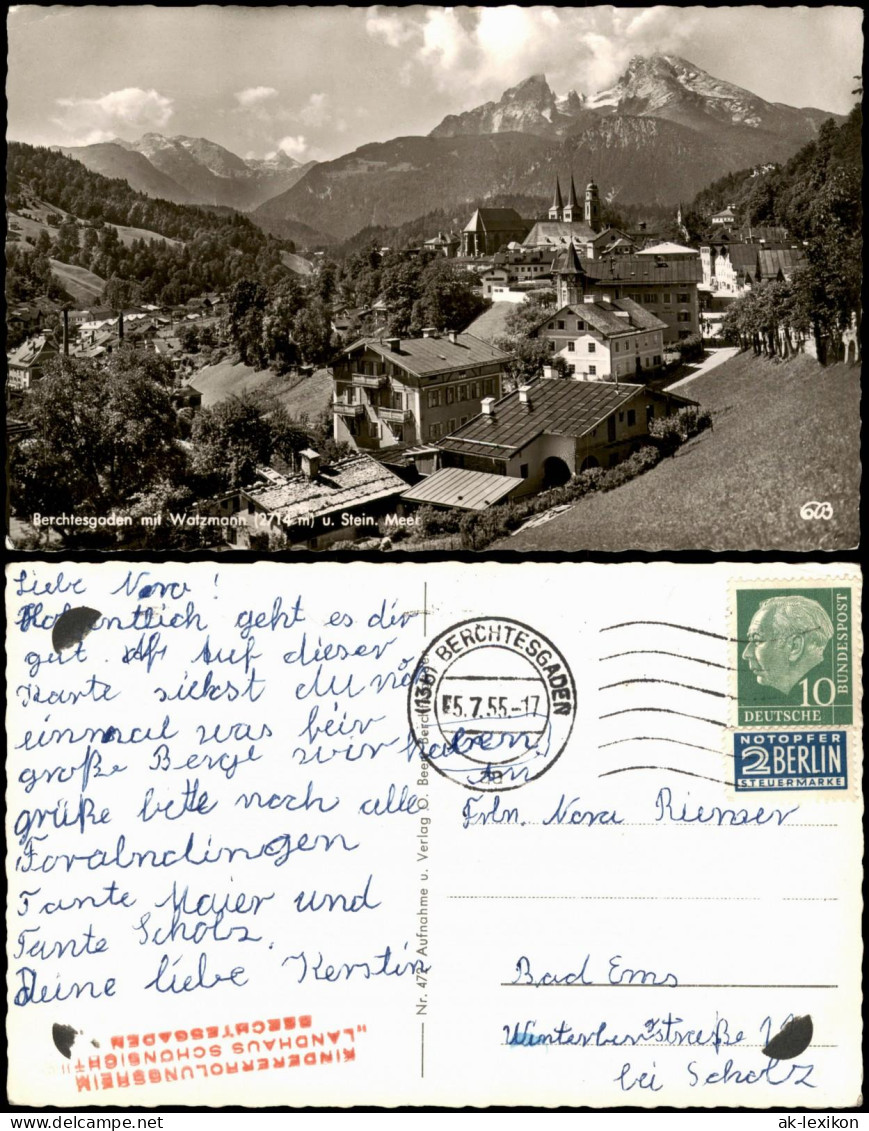 Berchtesgaden mit Watzmann (2714 m) u. Stein. Meer
Liebe Nora!
Hoffentlich geht es dir
gut. Auf dieser
Karte siehst du
einmal was
große Berge wir haben.
grüße bitte noch alle
Tante Maier und
Tante Scholz.
Deine liebe Kerstin
KINDERERHOLUNGSHEIM
„LANDHAUS SCHÖNSICHT"
BERCHTESGADEN
Nr. 472 Aufnahme u. Verlag
(13b) BERCHTESGADEN
5.7.55.-17
BUNDESPOST
10
DEUTSCHE
NOTOPFER
2 BERLIN
STEUERMARKE
An
Frln. Nora
Bad Ems
bei Scholz
delcampe.net
ak-lexikon